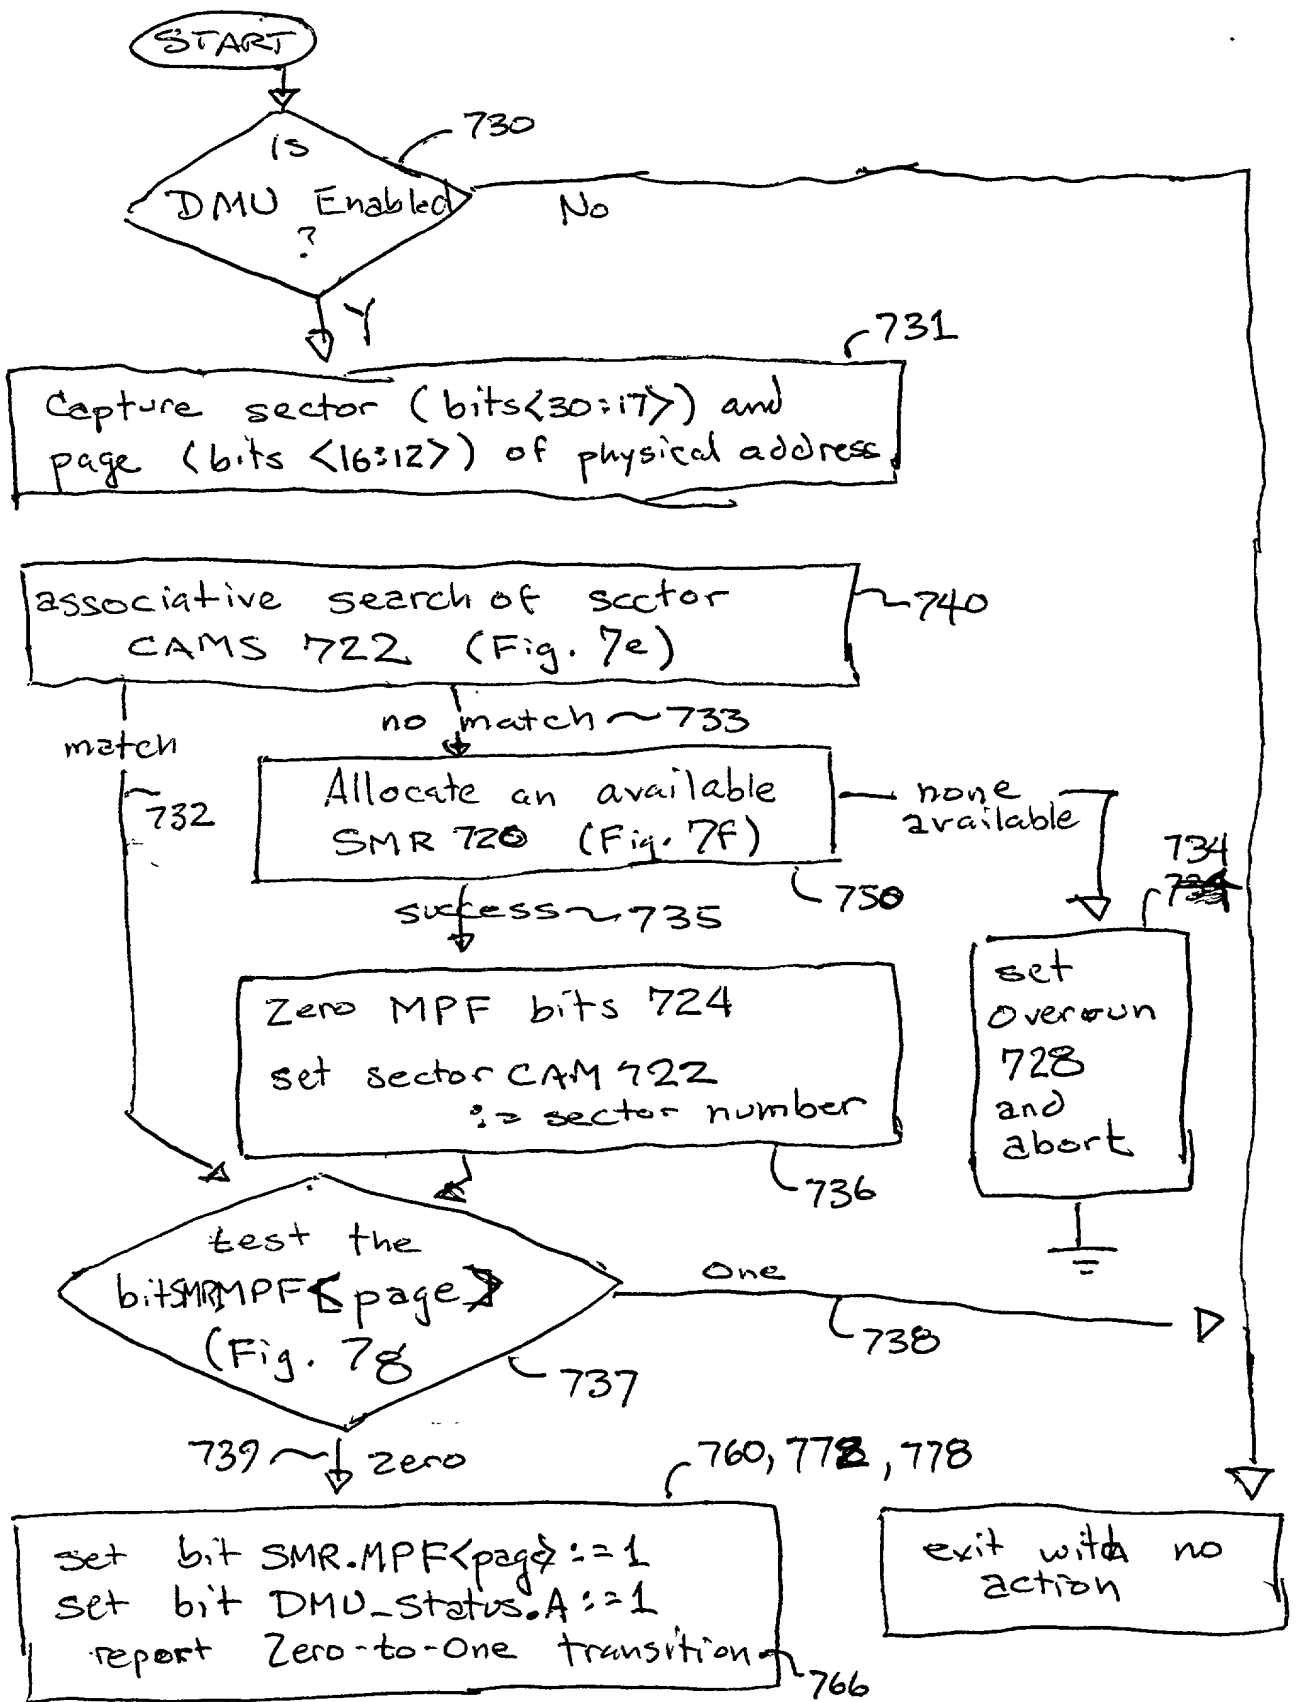 START
730
is
DMU Enabled
?
No
Y
731
Capture sector (bits<30:17>) and
page (bits <16:12>) of physical address
associative search of sector
CAMS 722 (Fig. 7e)
740
match
no match 733
732
Allocate an available
SMR 720 (Fig. 7f)
none
available
750
734
success 735
Zero MPF bits 724
set sector CAM 722
:= sector number
736
set
overrun
728
and
abort
test the
bit SMR MPF<page>
(Fig. 7g
One
738
737
739 zero
760, 772, 778
set bit SMR.MPF<page> :=1
set bit DMU_Status.A :=1
report Zero-to-One transition
766
exit with no
action